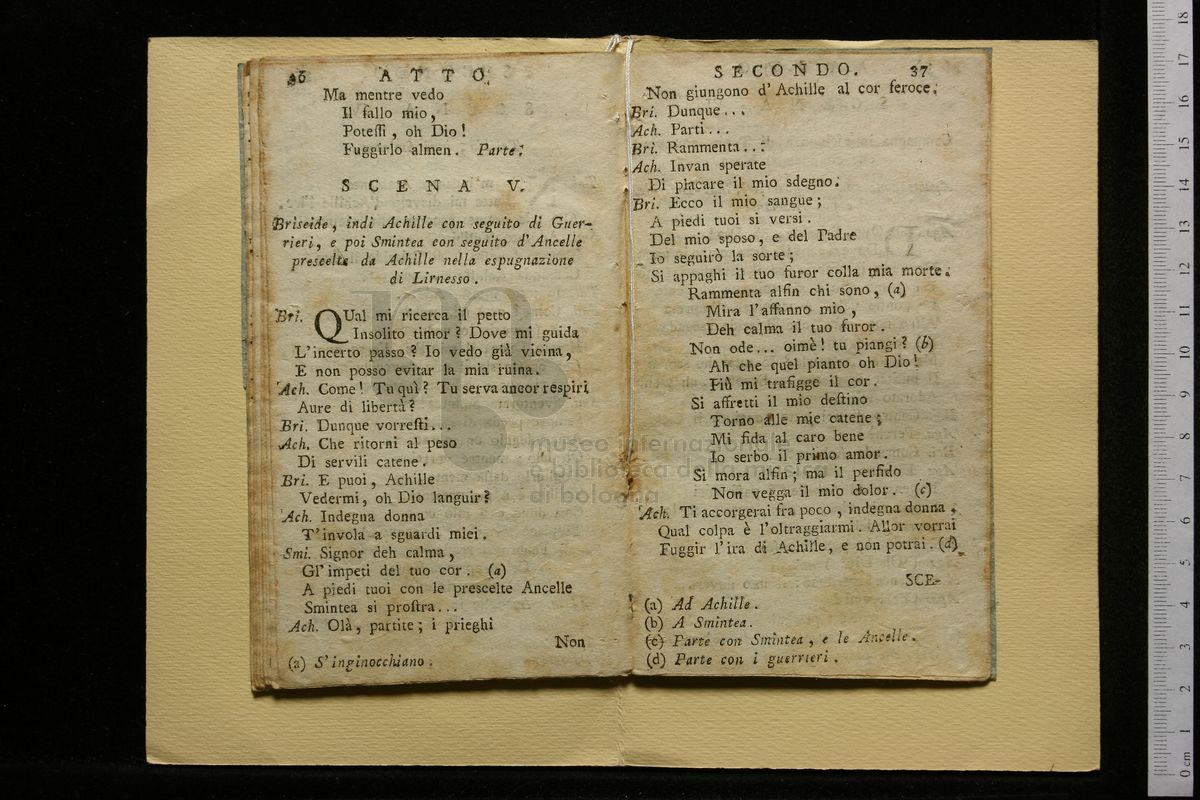 36 ATTO
Ma mentre vedo
Il fallo mio,
Potessi, oh Dio!
Fuggirlo almen. Parte.
SCENA V.
Briseide, indi Achille con seguito di Guer-
rieri, e poi Smintea con seguito d'Ancelle
prescelte da Achille nella espugnazione
di Lirnesso.
Bri. QUal mi ricerca il petto
Insolito timor? Dove mi guida
L'incerto passo? Io vedo già vicina,
E non posso evitar la mia ruina.
Ach. Come! Tu quì? Tu serva ancor respiri
Aure di libertà?
Bri. Dunque vorresti...
Ach. Che ritorni al peso
Di servili catene.
Bri. E puoi, Achille
Vedermi, oh Dio languir?
Ach. Indegna donna
T'invola a sguardi miei.
Smi. Signor deh calma,
Gl'impeti del tuo cor. (a)
A piedi tuoi con le prescelte Ancelle
Smintea si prostra...
Ach. Olà, partite; i prieghi
Non
(a) S'inginocchiano.
SECONDO. 37
Non giungono d'Achille al cor feroce.
Bri. Dunque...
Ach. Parti...
Bri. Rammenta...
Ach. Invan sperate
Di placare il mio sdegno.
Bri. Ecco il mio sangue;
A piedi tuoi si versi.
Del mio sposo, e del Padre
Io seguirò la sorte;
Si appaghi il tuo furor colla mia morte.
Rammenta alfin chi sono, (a)
Mira l'affanno mio,
Deh calma il tuo furor.
Non ode... oimè! tu piangi? (b)
Ah che quel pianto oh Dio!
Più mi trafigge il cor.
Si affretti il mio destino
Torno alle mie catene;
Mi fida al caro bene
Io serbo il primo amor.
Si mora alfin; ma il perfido
Non vegga il mio dolor. (c)
Ach. Ti accorgerai fra poco, indegna donna,
Qual colpa è l'oltraggiarmi. Allor vorrai
Fuggir l'ira di Achille, e non potrai. (d)
SCE-
(a) Ad Achille.
(b) A Smintea.
(c) Parte con Smintea, e le Ancelle.
(d) Parte con i guerrieri.
museo internazionale
e biblioteca della musica
di bologna
0 cm 1 2 3 4 5 6 7 8 9 10 11 12 13 14 15 16 17 18